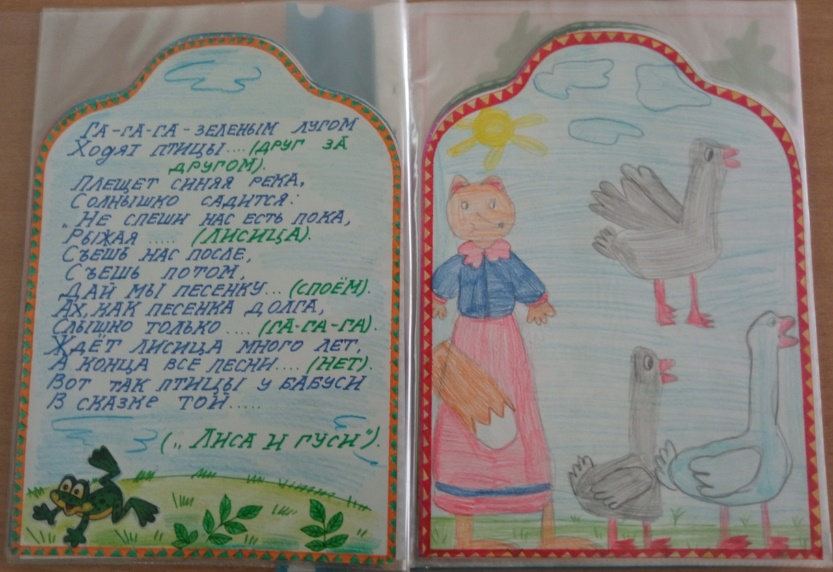 ГА-ГА-ГА-ЗЕЛЕНЫМ ЛУГОМ
ХОДЯТ ПТИЦЫ.... (ДРУГ ЗА
ДРУГОМ).
ПЛЕЩЕТ СИНЯЯ РЕКА,
СОЛНЫШКО САДИТСЯ:
„НЕ СПЕШИ НАС ЕСТЬ ПОКА,
РЫЖАЯ ..... (ЛИСИЦА).
СЪЕШЬ НАС ПОСЛЕ,
СЪЕШЬ ПОТОМ,
ДАЙ МЫ ПЕСЕНКУ... (СПОЁМ).
АХ, КАК ПЕСЕНКА ДОЛГА,
СЛЫШНО ТОЛЬКО .... (ГА-ГА-ГА).
ЖДЁТ ЛИСИЦА МНОГО ЛЕТ,
А КОНЦА ВСЕ ПЕСНИ.... (НЕТ).
ВОТ ТАК ПТИЦЫ У БАБУСИ
В СКАЗКЕ ТОЙ.....
(„ЛИСА И ГУСИ").